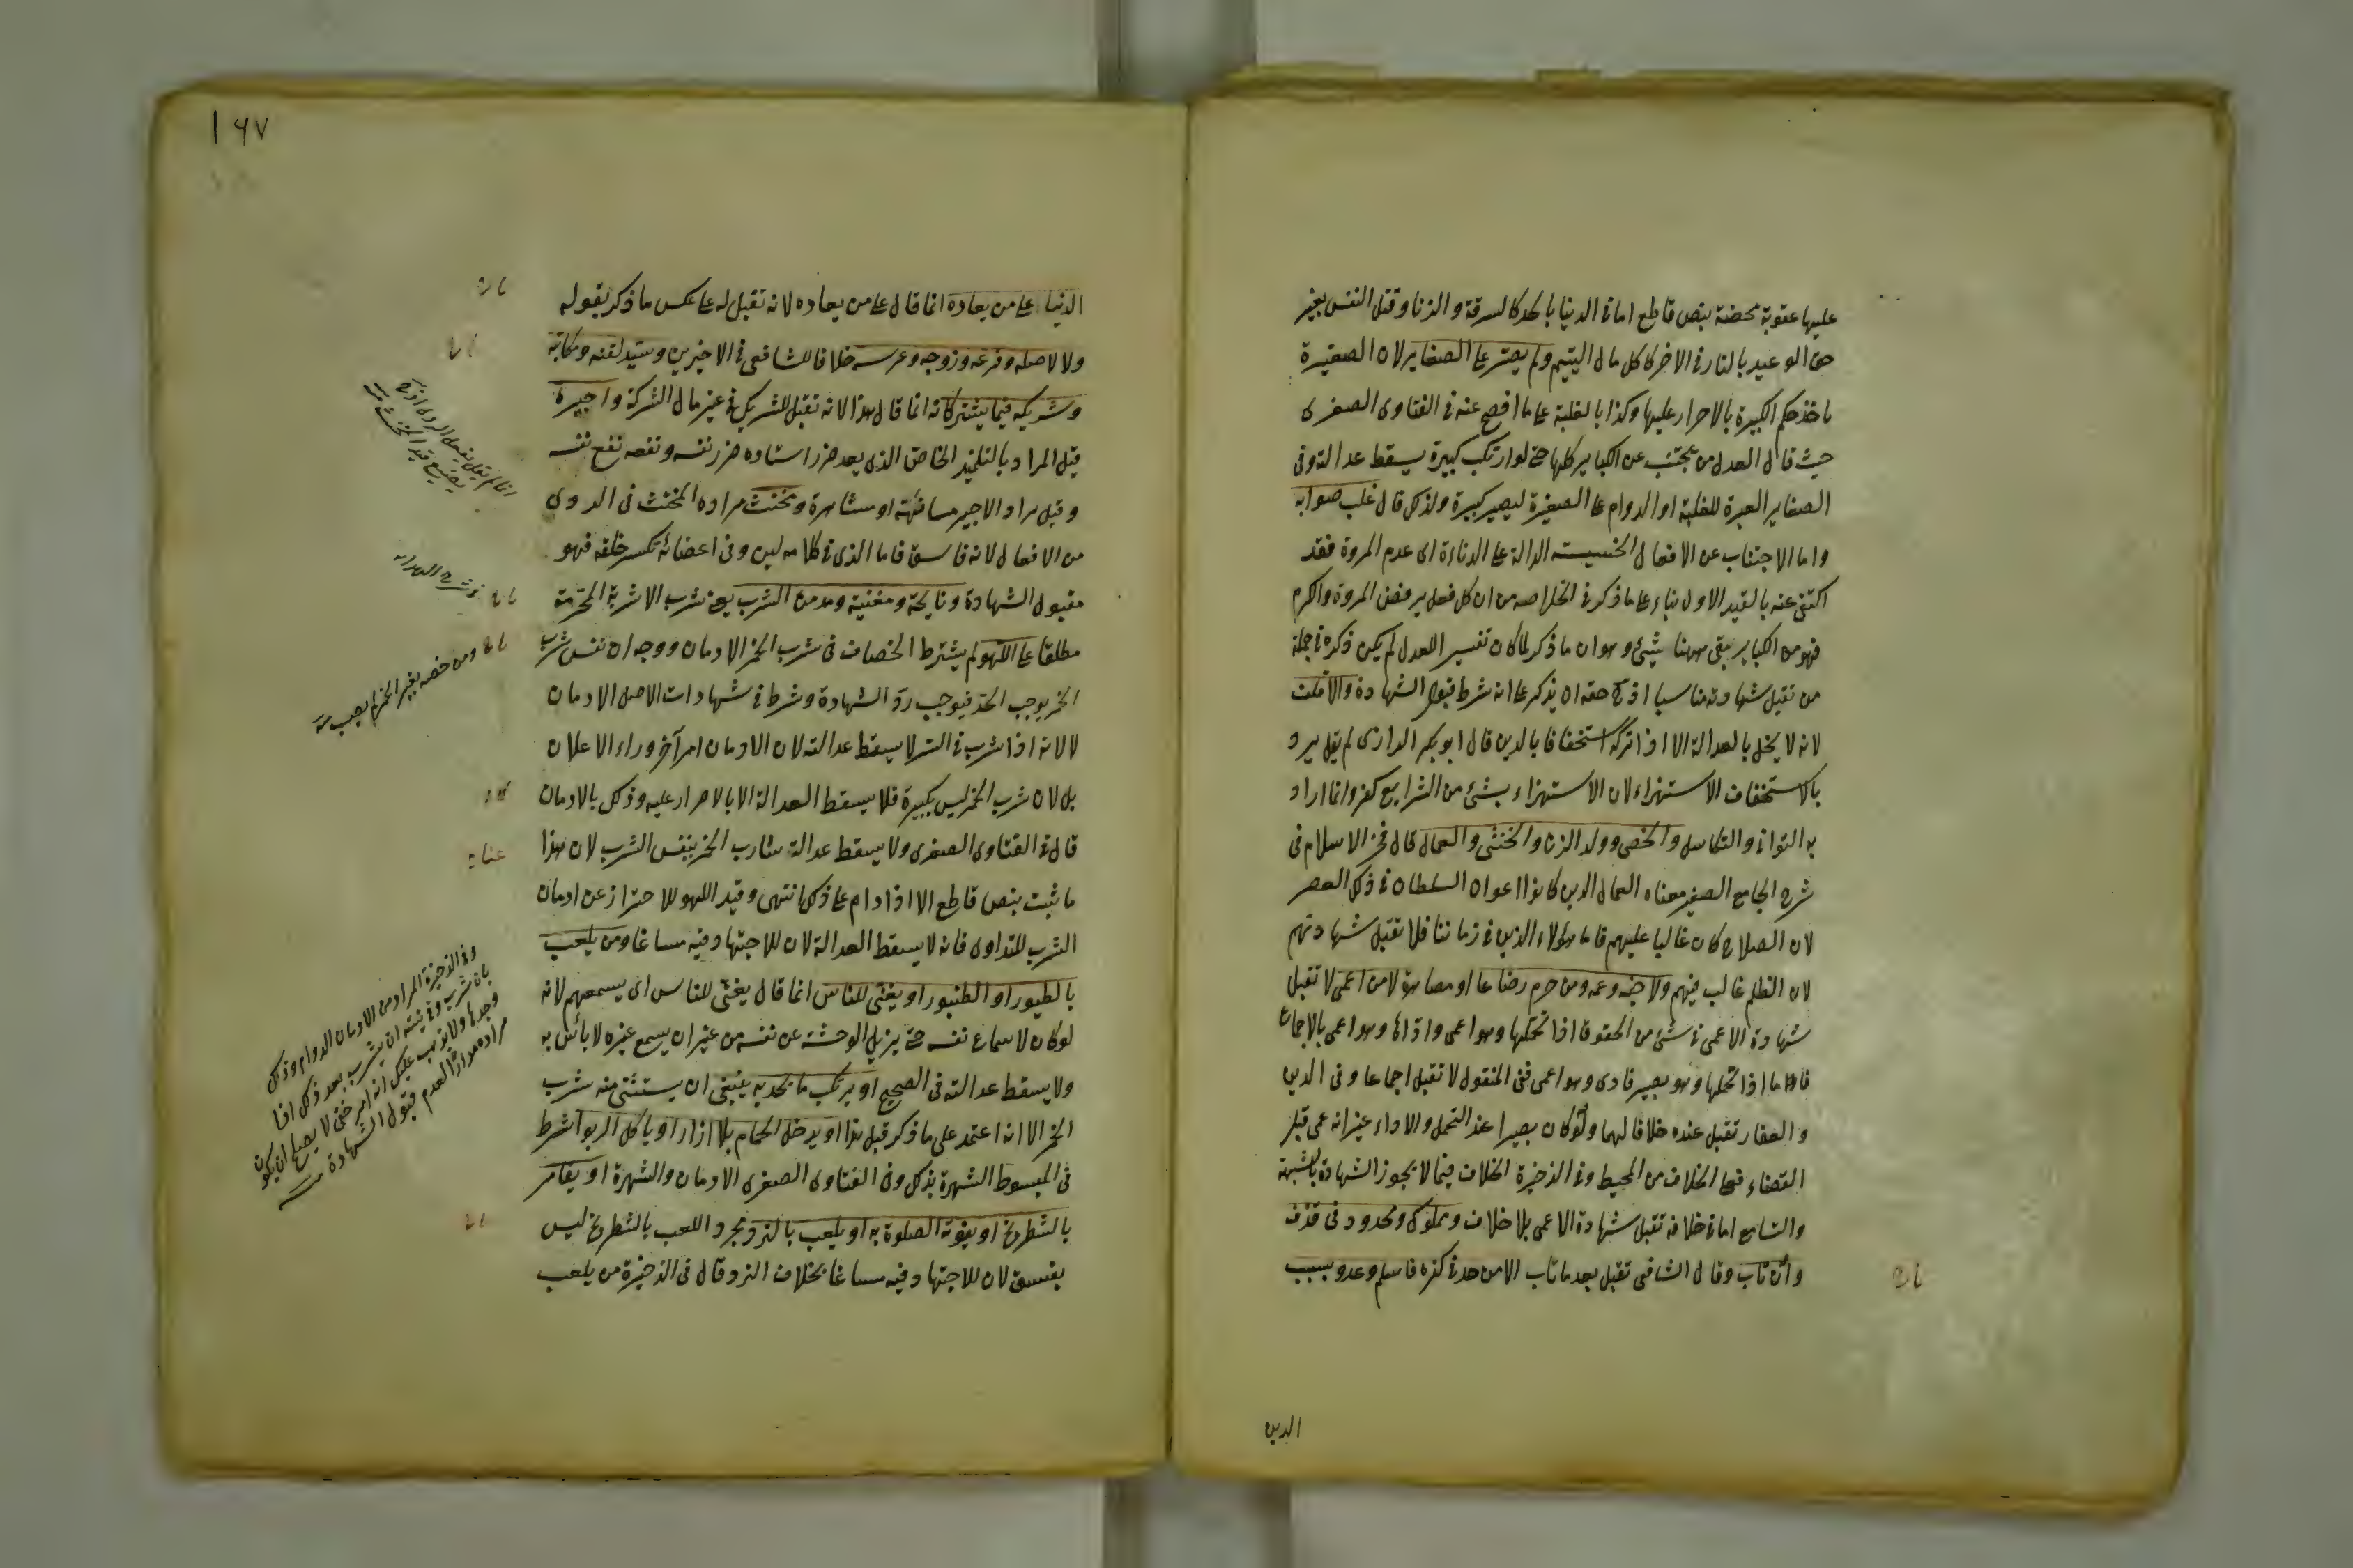 عليها عقوبة محضة بنص قاطع اما فى الدنيا بالحد كالسرقة والزنا وقتل النفس بغير
حق الوعيد بالنار فى الاخر كاكل مال اليتيم ولم يصر على الصغاير لان الصغيرة
ياخذ حكم الكبيرة بالاصرار عليها وكذا بالغلبة على ما افصح عنه فى الفتاوى الصغرى
حيث قال العدل من يجتنب عن الكباير كلها حتى لو ارتكب كبيرة يسقط عدالته وفى
الصغاير العبرة للغلبة او الدوام على الصغيرة ليصير كبيرة ولذلك قال غلب صوابه
واما الاجتناب عن الافعال الخسيسة الدالة على الدناءة اى عدم المروة فقد
اكتفى عنه بالقيد الاول بناء على ما ذكر فى الخلاصه من ان كل فعل يرفض المروة والكرم
فهو من الكباير بقى ههنا شيئ وهو ان ما ذكر لما كان تفسير العدل لم يكن ذكره فى جملة
من تقبل شهادته مناسبا اذ حقه ان يذكر على انه شرط قبول الشهادة والاقلف
لانه لا يخل بالعدالة الا اذا تركه استخفافا بالدين قال ابو بكر الرازى لم يقل يرد
بالاستخفاف الاستهزاء لان الاستهزاء بشئ من الشرايع كفر وانما اراد
به التوانى والتكاسل والخصى وولد الزنا والخنثى والعمال قال فخر الاسلام فى
شرح الجامع الصغير معناه العمال الذين كانوا اعوان السلطان فى ذلك العصر
لان الصلاح كان غالبا عليهم فاما هؤلاء الذين فى زماننا فلا تقبل شهادتهم
لان الظلم غالب فيهم ولاخيه وعمه ومن حرم رضاعا او مصاهرة لا من اعمى لا تقبل
شهادة الاعمى فى شئ من الحقوق اذا تحملها وهو اعمى واداها وهو اعمى بالاجماع
فاما اذا تحملها وهو بصير فادى وهو اعمى ففى المنقول لا تقبل اجماعا وفى الدين
والعقار تقبل عنده خلافا لهما ولو كان بصيرا عند التحمل والاداء غير انه عمى قبل
القضاء فعلى الخلاف من المحيط وفى الذخيرة الخلاف فيما لا يجوز الشهادة بالشهرة
والتسامع اما فى خلافه تقبل شهادة الاعمى بلا خلاف ومملوك ومحدود فى قذف
وان تاب وقال الشافعى تقبل بعد ما تاب الا من حد فى كفره فاسلم وعدو بسبب
الدين
١٦٧
الدنيا على من يعاده انما قال على من يعاده لانه تقبل له على عكس ما ذكر بقوله
ولا لاصله وفرعه وزوجه وعرسه خلافا للشافعى فى الاخيرين وسيد لقنه ومكاتبه
وشريكه فيما يشتركانه انما قال هذا لانه تقبل للشريك فى غير مال الشركة واجيره
قيل المراد بالتلميذ الخاص الذى يعد ضرر استاده ضرر نفسه ونفعه نفع نفسه
وقيل مراد الاجير مسانهة او مشاهرة ومخنث مراده المخنث فى الردى
من الافعال لانه فاسق فاما الذى فى كلامه لين وفى اعضائه تكسر خلقه فهو
مقبول الشهادة ونايحة ومغنية ومدمن الشرب يعنى شرب الاشربة المحرمة
مطلقا على اللهو لم يشترط الخصاف فى شرب الخمر الادمان ووجه ان نفس شرب
الخمر يوجب الحد فيوجب رد الشهادة وشرط فى شهادات الاصل الادمان
لا لانه اذا شرب فى السر لا يسقط عدالته لان الادمان امر آخر وراء الاعلان
بل لان شرب الخمر ليس بكبيرة فلا يسقط العدالة الا بالاصرار عليه وذلك بالادمان
قال فى الفتاوى الصغرى ولا يسقط عدالة شارب الخمر بنفس الشرب لان هذا
ما ثبت بنص قاطع الا اذا دام على ذلك انتهى وقيد اللهو للاحتراز عن ادمان
الشرب للتداوى فانه لا يسقط العدالة لان للاجتهاد فيه مساغا ومن يلعب
بالطيور او الطنبور او يغنى للناس انما قال يغنى للناس اى يسمعهم لانه
لو كان لاسماع نفسه حتى يزيل الوحشة عن نفسه من غير ان يسمع غيره لا بأس به
ولا يسقط عدالته فى الصحيح او يرتكب ما يحد به ينبغى ان يستثنى منه شرب
الخمر الا انه اعتمد على ما ذكر قبل هذا او يدخل الحمام بلا ازار او ياكل الربوا شرط
فى المبسوط الشهرة بذلك وفى الفتاوى الصغرى الادمان والشهرة او يقامر
بالشطرنج او يفوته الصلوة به او يلعب بالنرد ومجرد اللعب بالشطرنج ليس
بفسق لان للاجتهاد فيه مساغا بخلاف النرد قال فى الذخيرة من يلعب
انما لم يقل يفعل الردى اذ
يضيع قيد المخنث منه
ومن خصه بغير الخمر لم يصب منه
وفى الذخيرة المراد من الادمان الدوام وذلك
بان شرب وفى نيته ان يشرب بعد ذلك اذا
وجدها ولا يذهب عليك انه امر خفى لا يصلح ان يكون
مدارا لعدم قبول الشهادة منه